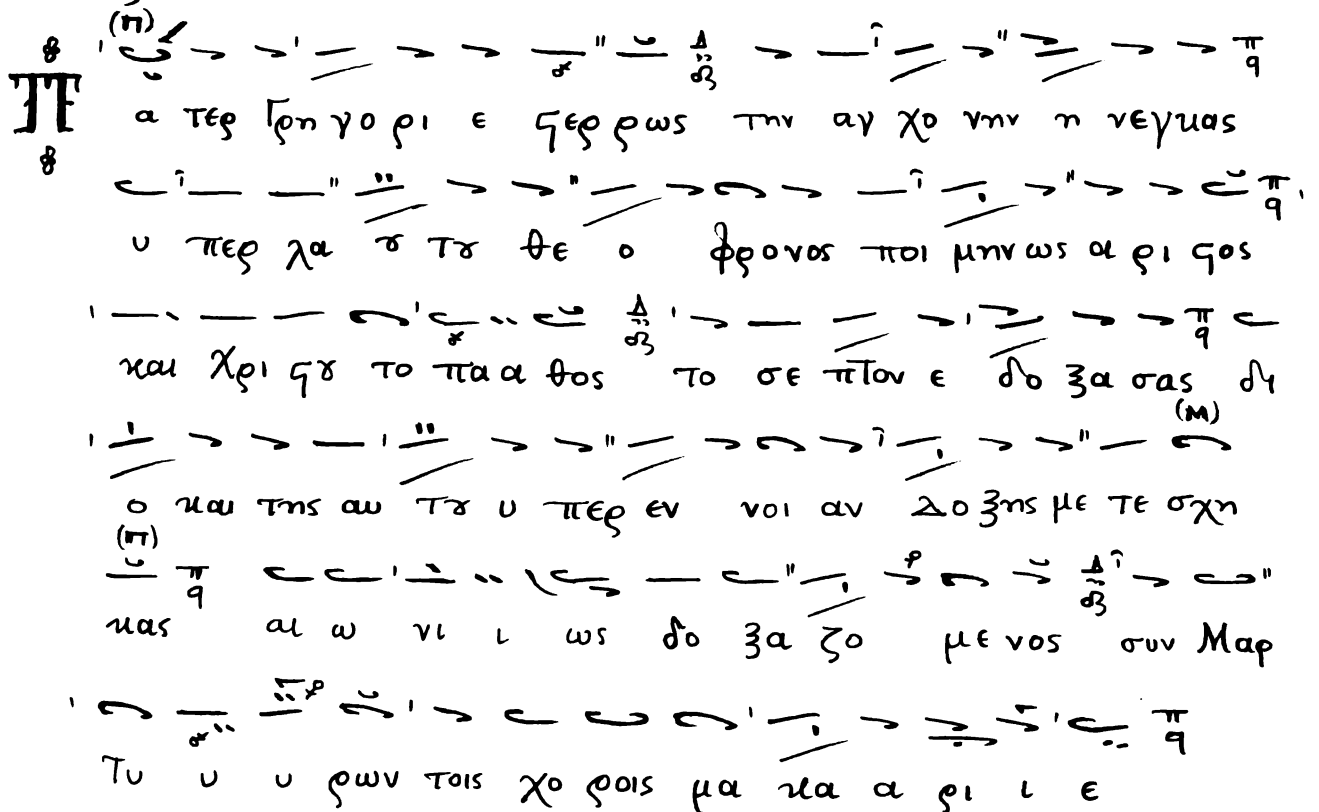 Π α τερ Γρη γο ρι ε ϛερ ρως την αγ χο νην η νεγκας
υ περ λα ȣ τȣ θε ο φρονος ποι μην ως α ρι ϛος
και Χρι ϛȣ το πα α θος το σε πτον ε δο ξα σας δι
ο και της αυ τȣ υ περ εν νοι αν Δο ξης με τε σχη
κας αι ω νι ι ως δο ξα ζο με νος συν Μαρ
τυ υ υ ρων τοις χο ροις μα κα α ρι ι ε